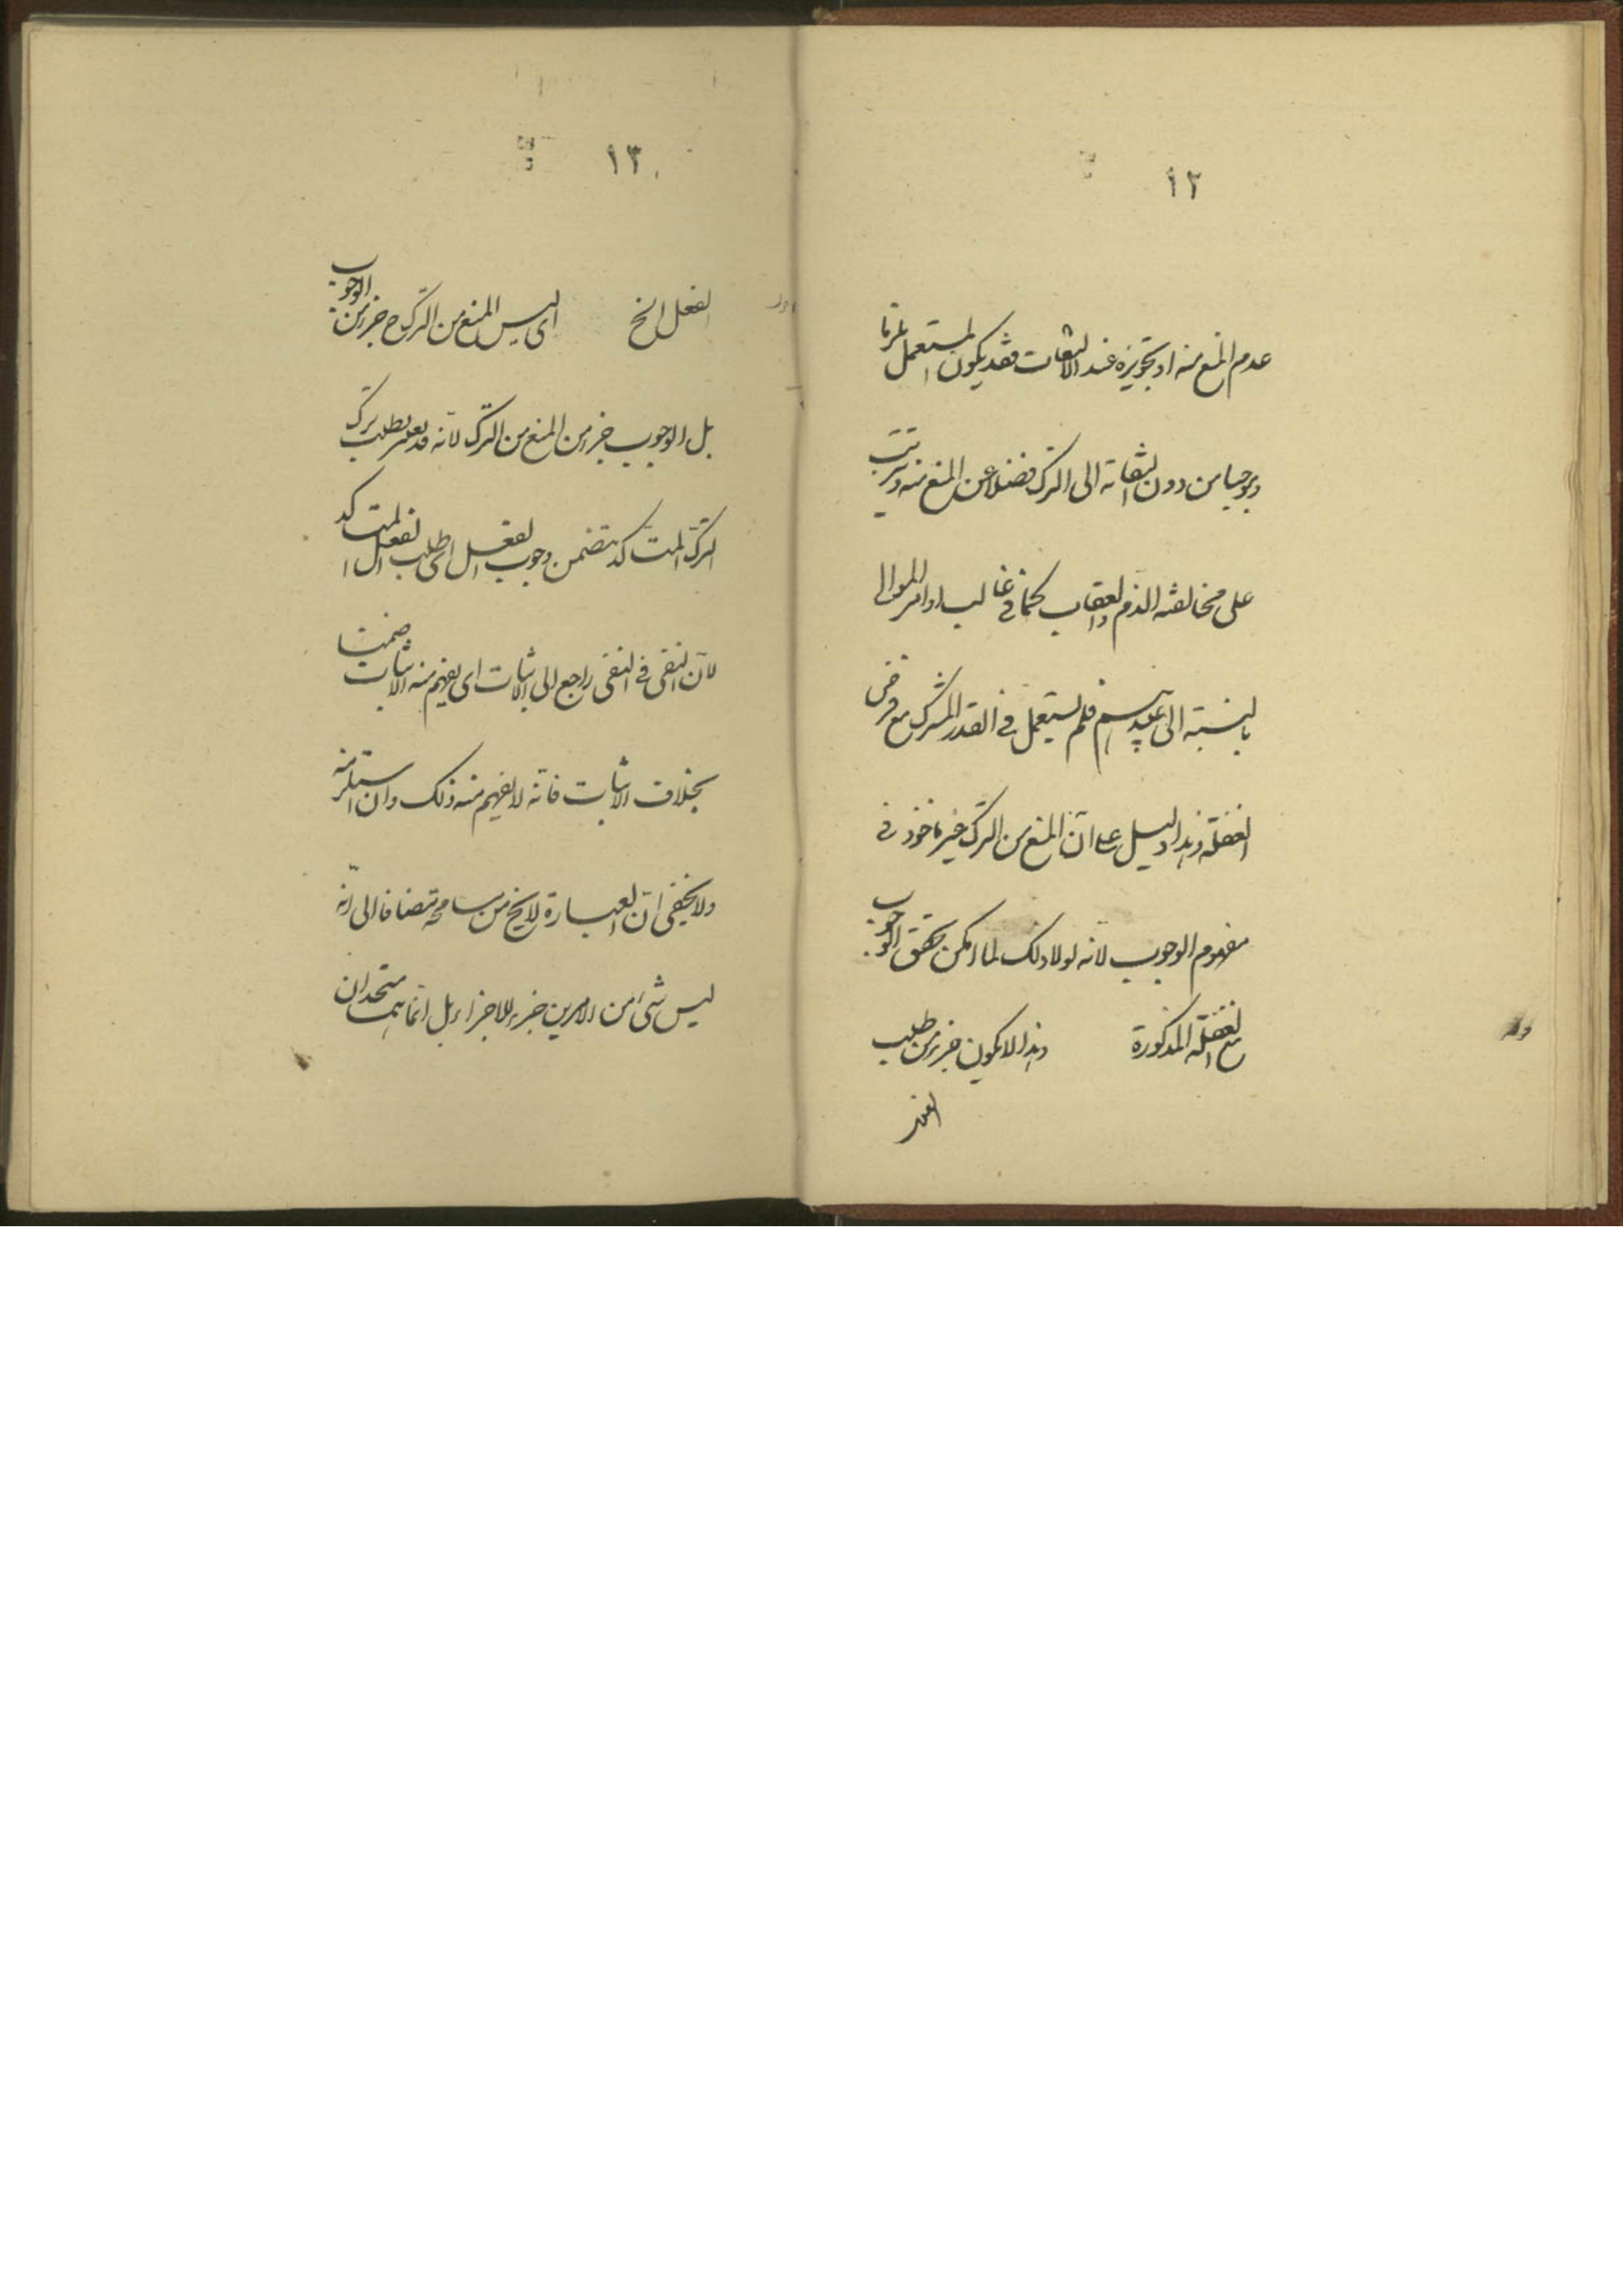 ١٢
عدم المنع منه او تجويزه عند الالتفات فقد يكون المستعمل ملزما
وموجبا من دون التفاته الى الترك فضلا عن المنع منه ويترتب
على مخالفته الذم والعقاب كما فى غالب اوامر الموالى
بالنسبة الى عبيدهم فلم يستعمل فى القدر المشترك مع فرض
الغفلة وهذا دليل على ان المنع من الترك غير ماخوذ فى
مفهوم الوجوب لانه لولا ذلك لما امكن تحقق الوجوب
مع الغفلة المذكورة وهذا لا يكون جزء من طلب
الفعل
١٣
الفعل الخ اى ليس المنع من الترك ح جزء من الوجوب
بل الوجوب جزء من المنع من الترك لانه قد يعبر بطلب ترك
الترك المتاكد يتضمن وجوب الفعل اى طلب الفعل المتاكد
لان النفى فى النفى راجع الى الاثبات اى يفهم منه الاثبات ضمنا
بخلاف الاثبات فانه لا يفهم منه ذلك وان استلزمه
ولا يخفى ان العبارة لا يخ من مسامحة مضافا الى انه
ليس شئ من الامرين جزء للاجزاء بل انما هما متحدان